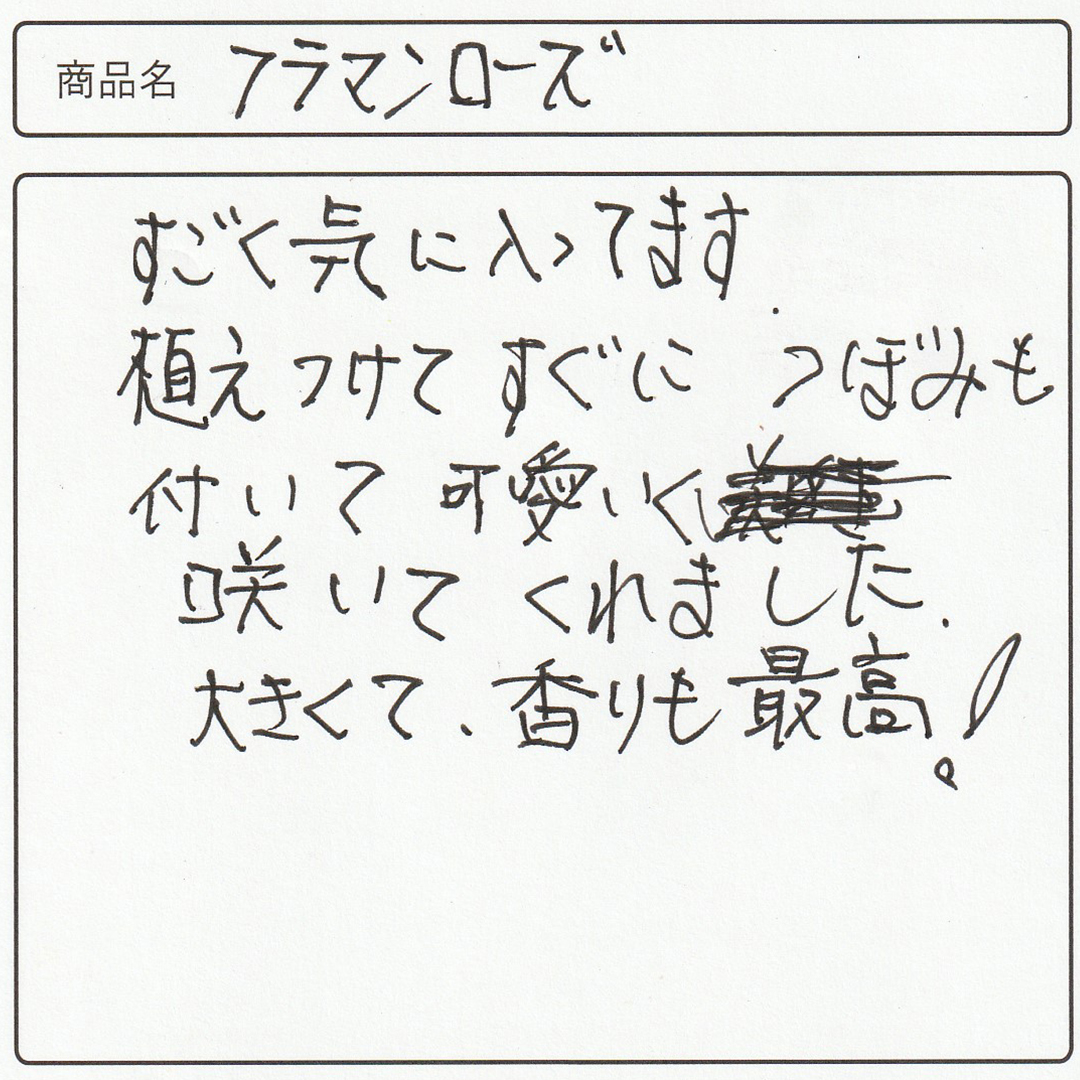 商品名 フラマンローズ
すごく気に入ってます.
植えつけてすぐに つぼみも
付いて 可愛いく
咲いて くれました.
大きくて、香りも最高!